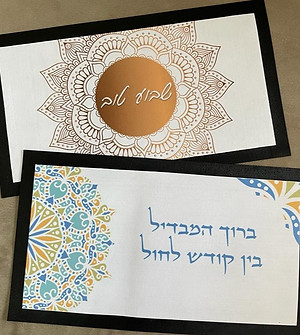 שבוע טוב
ברוך המבדיל
בין קודש לחול